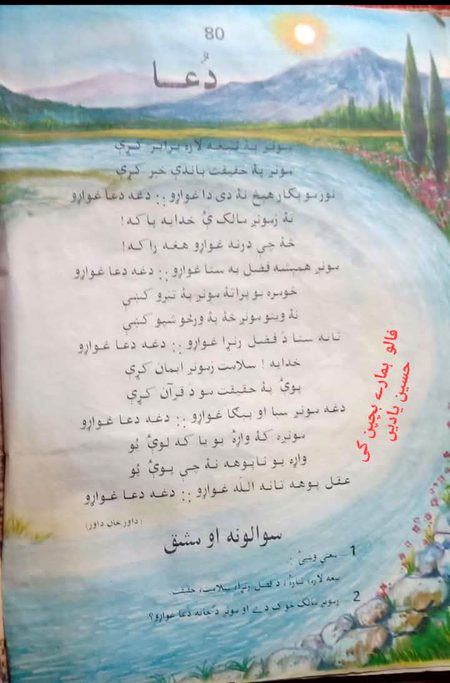 80
دُعــا
مونږ په نېغه لاره برابر کړې
مونږ په حقیقت باندې خبر کړې
نور مو پکار هیڅ نهٔ دی دا غواړو :: دغه دعا غواړو
تهٔ زمونږ مالک یې خدایه پاکه!
څهٔ چې درنه غواړو هغه راکه!
مونږ همیشه فضل به ستا غواړو :: دغه دعا غواړو
خومره یو پراتهٔ مونږ په تېرو کښې
نهٔ وینو مونږ څهٔ په ورځو شپو کښې
تانه ستا د فضل رڼړا غواړو :: دغه دعا غواړو
خدایه ! سلامت زمونږ ایمان کړې
پوئ په حقیقت مو د قرآن کړې
دغه مونږ ستا او بیګا غواړو :: دغه دعا غواړو
مونږه کهٔ واړهٔ یو یا که لوئ یُو
واړه یو ناپوهه نهٔ چې پوئ یُو
عقل پوهه تانه الله غواړو :: دغه دعا غواړو
(داور خان داؤد)
سوالونه او مشق
1 معنې وښیئ :
نېغه لاره، تیارهٔ، د فضل رڼړا، سلامت، حقیقت
2 زمونږ مالک څوک دے او مونږ د چانه دعا غواړو؟
فالو ہمارے بچپن کی
حسین یادیں